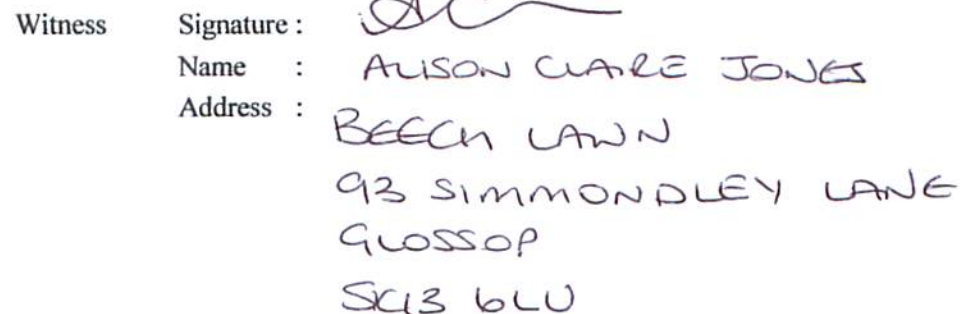 Witness Signature :
Name : ALISON CLARE JONES
Address :
BEECH LAWN
93 SIMMONDLEY LANE
GLOSSOP
SK13 6LU